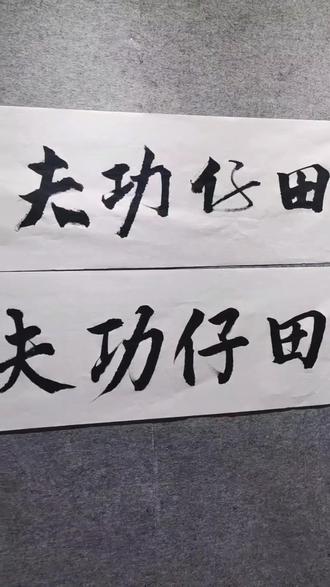 田仔功夫
田仔功夫